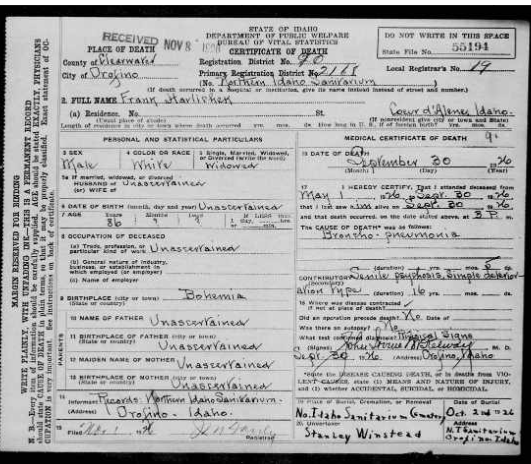 RECEIVED NOV 8
STATE OF IDAHO
DEPARTMENT OF PUBLIC WELFARE
BUREAU OF VITAL STATISTICS
CERTIFICATE OF DEATH
DO NOT WRITE IN THIS SPACE
State File No. 55194
PLACE OF DEATH
County of Clearwater
Registration District No. 90
City of Orofino
Primary Registration District No. 2168
Local Registrar's No. 19
(No. Northern Idaho Sanitarium
(If death occurred in a hospital or institution, give its name instead of street and number.)
2. FULL NAME Frank Havlichek
(a) Residence. No. St. Coeur d'Alene, Idaho.
(Usual place of abode) (If nonresident give city or town and State)
Length of residence in city or town where death occurred yrs. mos. ds. How long in U. S., if of foreign birth? yrs. mos. ds.
PERSONAL AND STATISTICAL PARTICULARS
MEDICAL CERTIFICATE OF DEATH
3 SEX
4 COLOR OR RACE
5 Single, Married, Widowed, or Divorced (write the word)
Male White Widowed
16 DATE OF DEATH
September 30 1926
(Month) (Day) (Year)
5a If married, widowed, or divorced
HUSBAND of
(or) WIFE of
Unascertained
17 I HEREBY CERTIFY, That I attended deceased from
May 1 1926, Sept. 30 1926
that I last saw him alive on Sept. 30 1926
6 DATE OF BIRTH (month, day and year) Unascertained
and that death occurred, on the date stated above, at 3 P. m.
7 AGE Years Months Days If LESS than 1 day
86
The CAUSE OF DEATH* was as follows:
Broncho-pneumonia
8 OCCUPATION OF DECEASED
(a) Trade, profession, or particular kind of work Unascertained
(b) General nature of industry, business, or establishment in which employed (or employer)
(c) Name of employer
(duration) yrs. mos. ds.
CONTRIBUTORY Senile psychosis, simple deterior-
(Secondary)
ation type (duration) 16 yrs. mos. ds.
9 BIRTHPLACE (city or town) Bohemia
(State or country)
18 Where was disease contracted if not at place of death?
Did an operation precede death? No Date of
Was there an autopsy? No
What test confirmed diagnosis? Physical Signs
PARENTS
10 NAME OF FATHER Unascertained
11 BIRTHPLACE OF FATHER (city or town)
(State or country) Unascertained
12 MAIDEN NAME OF MOTHER Unascertained
13 BIRTHPLACE OF MOTHER (city or town)
(State or country) Unascertained
(Signed) M. D.
Sept. 30 1926 (Address) Orofino, Idaho
*State the DISEASE CAUSING DEATH, or in deaths from VIOLENT CAUSES, state (1) MEANS AND NATURE OF INJURY, and (2) whether ACCIDENTAL, SUICIDAL, or HOMICIDAL.
14 Informant Records: Northern Idaho Sanitarium.
(Address) Orofino - Idaho.
19 Place of Burial, Cremation, or Removal Date of Burial
No. Idaho Sanitarium Cemetery Oct 2nd 1926
15 Filed Nov 1 1926
Registrar
20 Undertaker Address
Stanley Winstead N. I. Sanitarium Orofino Idaho
MARGIN RESERVED FOR BINDING
WRITE PLAINLY, WITH UNFADING INK—THIS IS A PERMANENT RECORD
N. B.—Every item of information should be carefully supplied. AGE should be stated EXACTLY. PHYSICIANS should state CAUSE OF DEATH in plain terms, so that it may be properly classified. Exact statement of OCCUPATION is very important. See instructions on back of certificate.